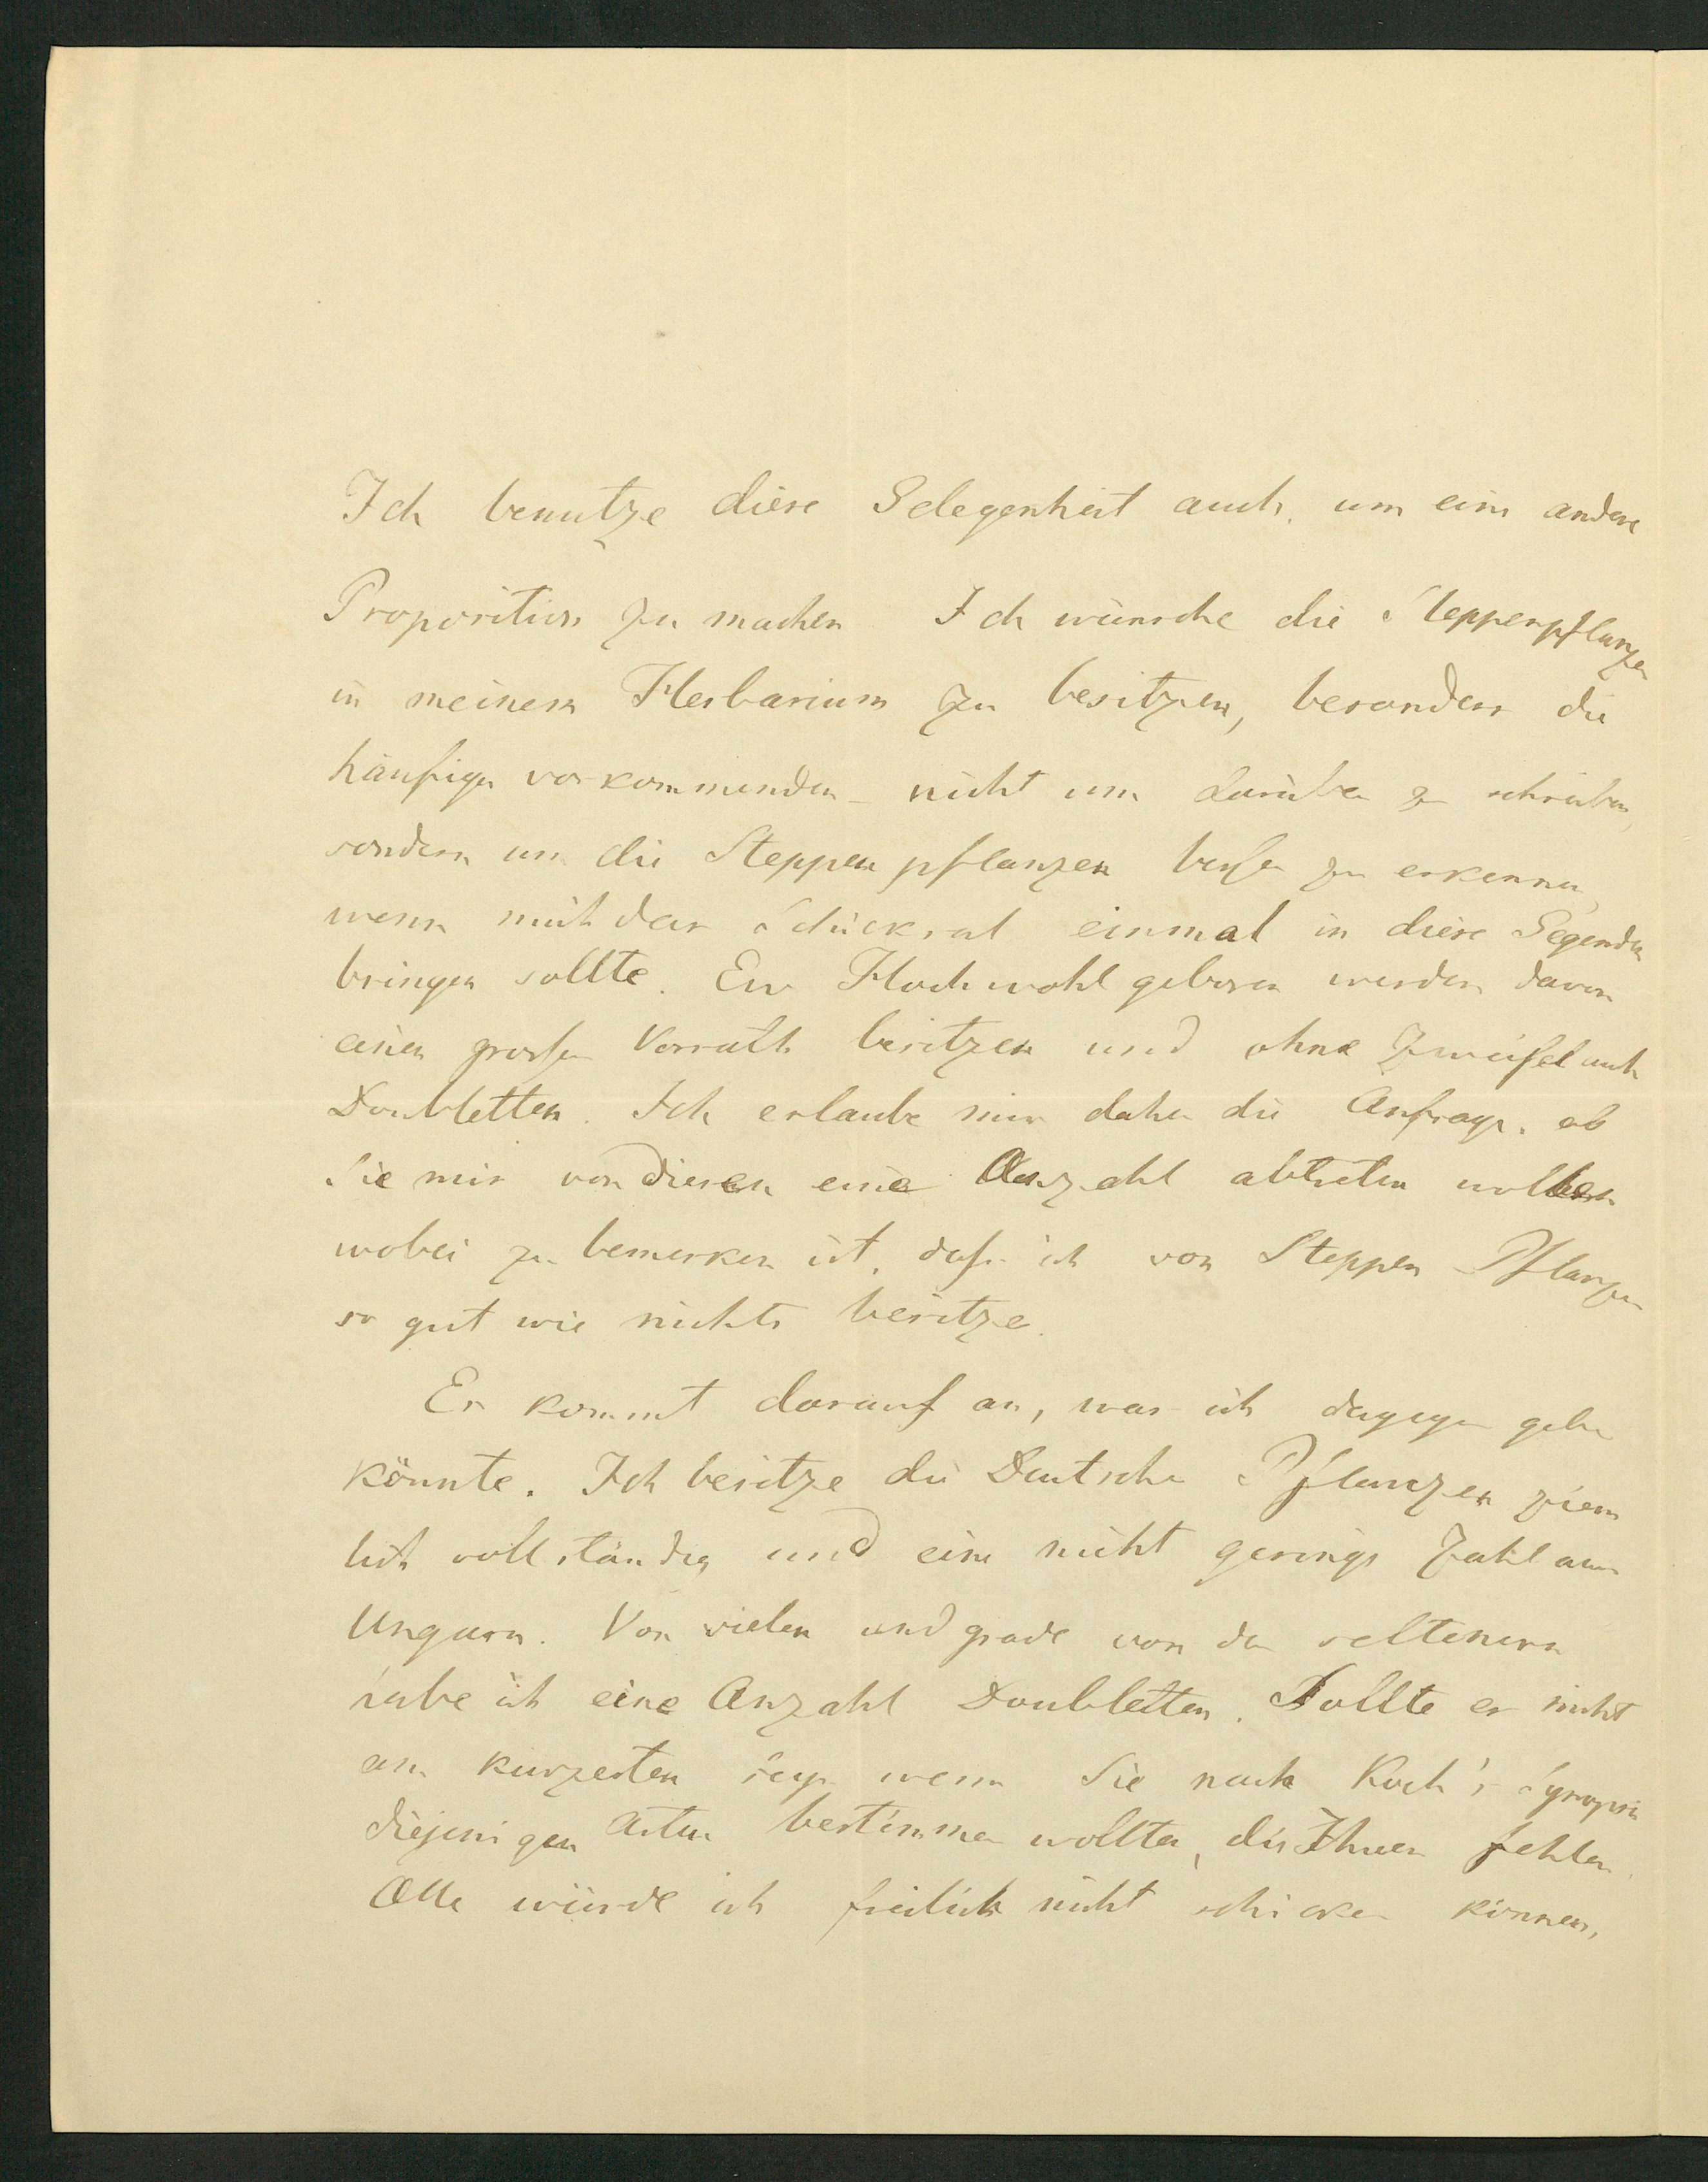 Ich benutze diese Gelegenheit auch, um eine andere
Proposition zu machen Ich wünsche die Steppenpflanzen
in meinem Herbarium zu besitzen, besonders die
häufiger vorkommenden – nicht um darüber zu schreiben,
sondern um die Steppenpflanzen besser zu erkennen,
wenn mich das Schicksal einmal in diese Gegenden
bringen sollte. Ew Hochwohlgeboren werden davon
einen grossen Vorrath besitzen und ohne Zweifel auch
Doubletten. Ich erlaube mir daher die Anfrage, ob
Sie mir von diesen eine Anzahl abtreten wollten
wobei zu bemerken ist, dass ich von Steppen Pflanzen
so gut wie nichts besitze.
Es kommt darauf an, was ich dagegen geben
könnte. Ich besitze die Deutschen Pflanzen ziem
lich vollständig und eine nicht geringe Zahl aus
Ungarn. Von vielen und grade von den seltenern
habe ich eine Anzahl Doubletten. Sollte es nicht
am kurzesten seyn wenn Sie nach Koch's Synopsis
diejenigen Arten bestimmen wollten, die Ihnen fehlen.
Alle würde ich freilich nicht schicken können,